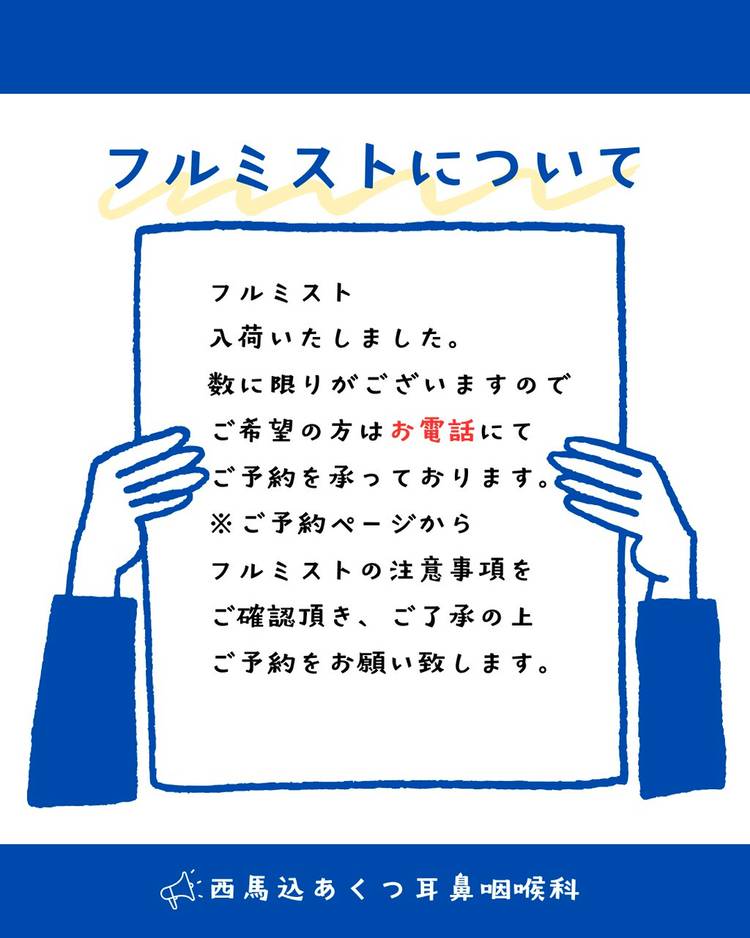 フルミストについて
フルミスト
入荷いたしました。
数に限りがございますので
ご希望の方はお電話にて
ご予約を承っております。
※ご予約ページから
フルミストの注意事項を
ご確認頂き、ご了承の上
ご予約をお願い致します。
西馬込あくつ耳鼻咽喉科